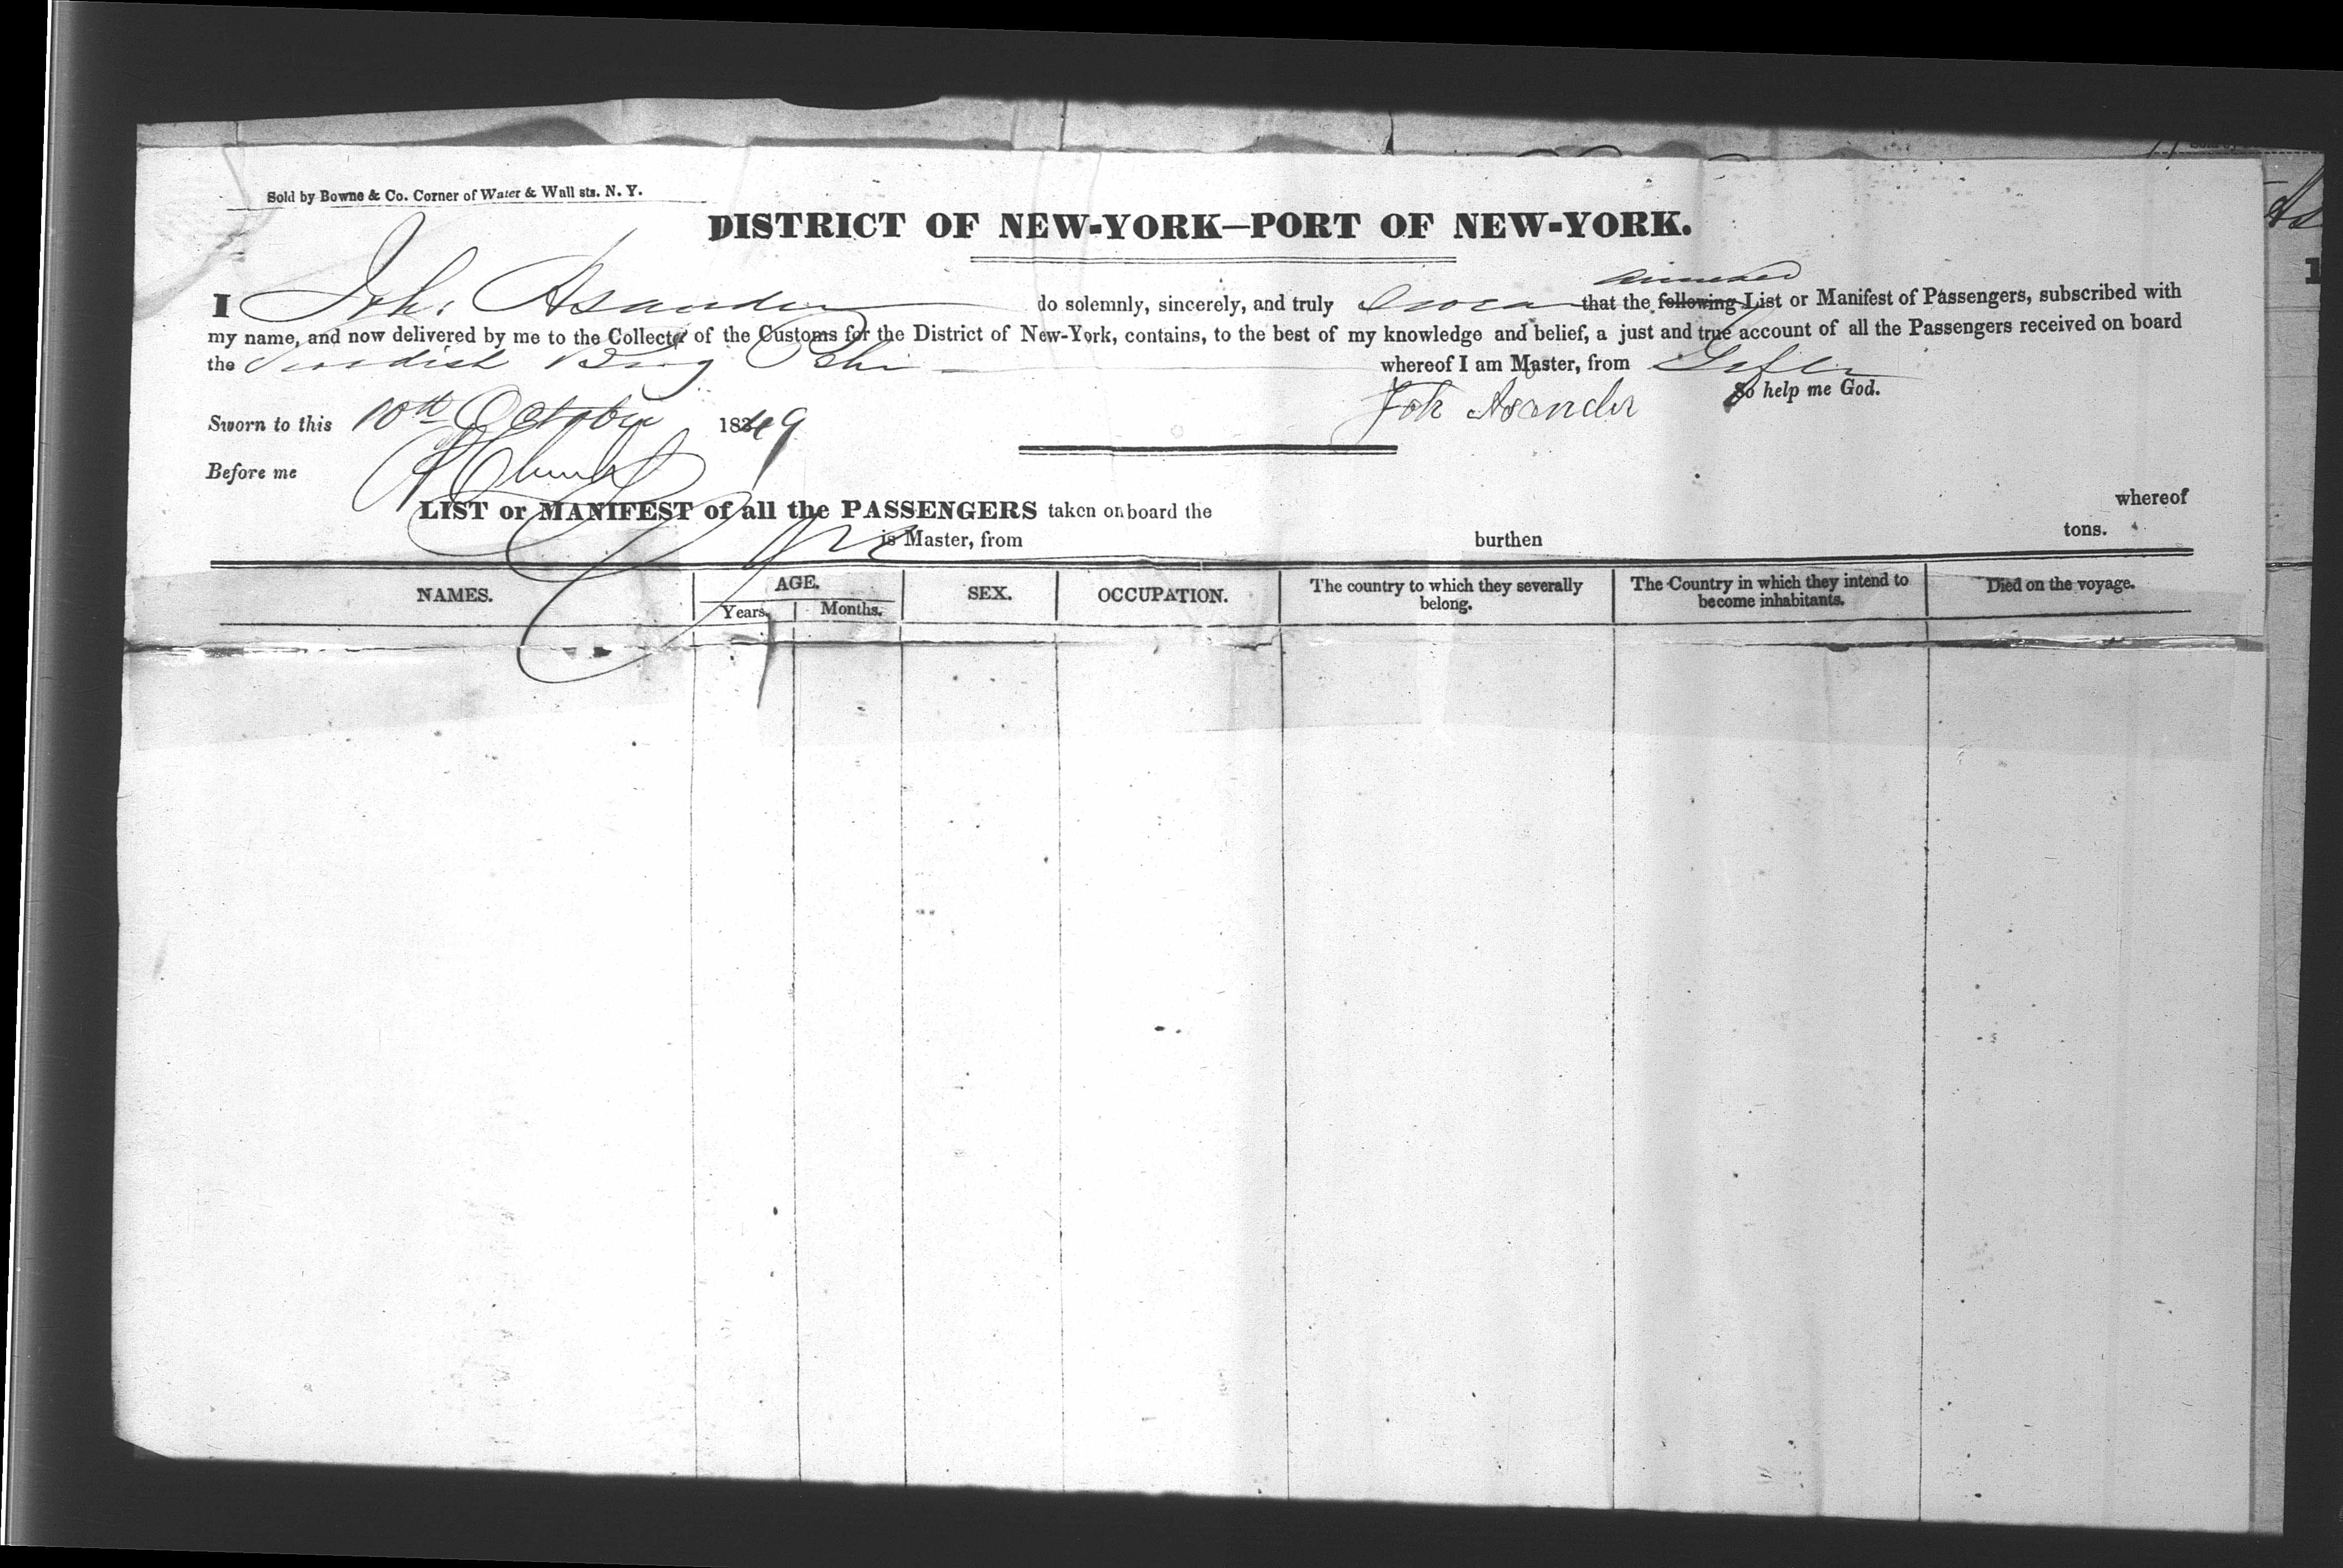 Sold by Bowne & Co. Corner of Water & Wall sts. N. Y.
DISTRICT OF NEW-YORK—PORT OF NEW-YORK.
annexed
I Joh: Asander do solemnly, sincerely, and truly swear that the following List or Manifest of Passengers, subscribed with
my name, and now delivered by me to the Collector of the Customs for the District of New-York, contains, to the best of my knowledge and belief, a just and true account of all the Passengers received on board
the Swedish Brig whereof I am Master, from Gefle
So help me God.
Joh Asander
Sworn to this 10th October 1849
Before me
LIST or MANIFEST of all the PASSENGERS taken on board the whereof
is Master, from burthen tons.
NAMES. AGE. SEX. OCCUPATION. The country to which they severally belong. The Country in which they intend to become inhabitants. Died on the voyage.
Years. Months.